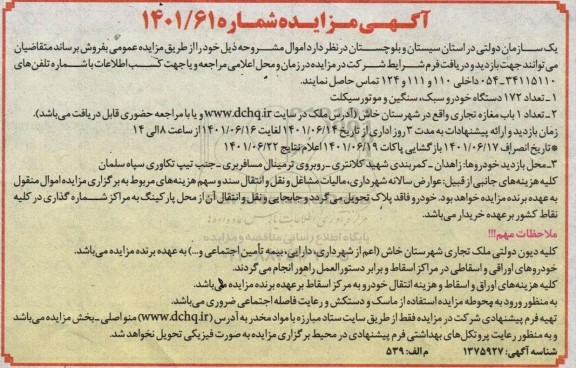 آگهی مزایده شماره ۱۴۰۱/۶۱
یک سازمان دولتی در استان سیستان و بلوچستان در نظر دارد اموال مشروحه ذیل خود را از طریق مزایده عمومی بفروش برساند متقاضیان
می‌توانند جهت بازدید و دریافت فرم شرایط شرکت در مزایده در زمان و محل اعلامی مراجعه و یا جهت کسب اطلاعات با شماره تلفن‌های
۳۴۱۱۵۱۱۰-۰۵۴ داخلی ۱۱۰ و ۱۱۱ و ۱۲۴ تماس حاصل نمایند.
۱-تعداد ۱۷۲ دستگاه خودرو سبک، سنگین و موتورسیکلت
۲-تعداد ۱ باب مغازه تجاری واقع در شهرستان خاش (آدرس ملک در سایت www.dchq.ir و یا با مراجعه حضوری قابل دریافت می‌باشد).
زمان بازدید و ارائه پیشنهادات به مدت ۳ روز اداری از تاریخ ۱۴۰۱/۰۶/۱۴ لغایت ۱۴۰۱/۰۶/۱۶ از ساعت ۸ الی ۱۴
*تاریخ انصراف ۱۴۰۱/۰۶/۱۷ بازگشایی پاکات ۱۴۰۱/۰۶/۱۹ اعلام نتایج ۱۴۰۱/۰۶/۲۲
۳-محل بازدید خودروها: زاهدان -کمربندی شهید کلانتری -روبروی ترمینال مسافربری -جنب تیپ تکاوری سپاه سلمان
کلیه هزینه‌های جانبی از قبیل: عوارض سالانه شهرداری، مالیات مشاغل و نقل و انتقال سند و سهم هزینه‌های مربوط به برگزاری مزایده اموال منقول
به عهده برنده مزایده خواهد بود. خودرو فاقد پلاک تحویل می‌گردد و جابجایی و نقل و انتقال آن از محل پارکینگ به مراکز شماره گذاری در کلیه
نقاط کشور بر عهده خریدار می‌باشد.
ملاحظات مهم!!!
کلیه دیون دولتی ملک تجاری شهرستان خاش (اعم از شهرداری، دارایی، بیمه تأمین اجتماعی و...) به عهده برنده مزایده می‌باشد.
خودروهای اوراقی و اسقاطی در مراکز اسقاط و برابر دستورالعمل راهور انجام می‌گردند.
کلیه هزینه‌های اوراق و اسقاط و هزینه انتقال خودرو به مرکز اسقاط بر عهده برنده مزایده می‌باشد.
به منظور ورود به محوطه مزایده استفاده از ماسک و دستکش و رعایت فاصله اجتماعی ضروری می‌باشد.
تهیه فرم پیشنهادی شرکت در مزایده فقط از طریق سایت ستاد مبارزه با مواد مخدر به آدرس (www.dchq.ir) منو اصلی-بخش مزایده می‌باشد
و به منظور رعایت پروتکل‌های بهداشتی فرم پیشنهادی در محیط برگزاری مزایده به صورت فیزیکی تحویل نخواهد شد.
شناسه آگهی: ۱۳۷۵۹۲۷ م الف: ۵۳۹